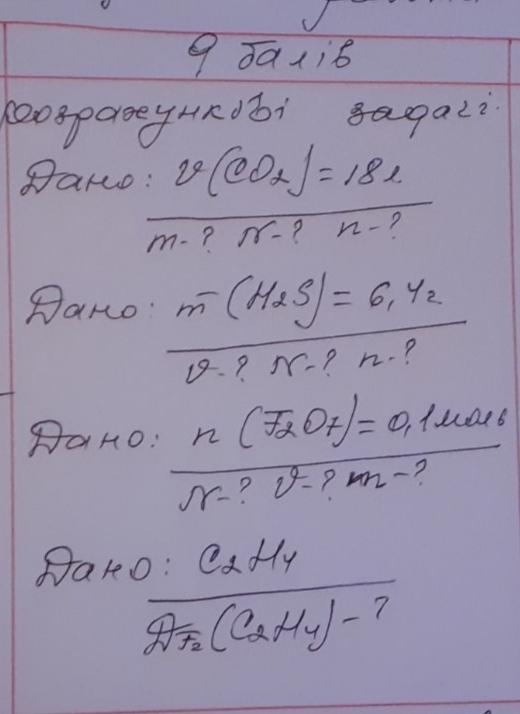 9 балів
розрахункові задачі.
Дано: V(CO2) = 18л
m-? N-? n-?
Дано: m(H2S) = 6,4г
V-? N-? n-?
Дано: n(F2O7) = 0,1моль
N-? V-? m-?
Дано: C2H4
DF2(C2H4)-?